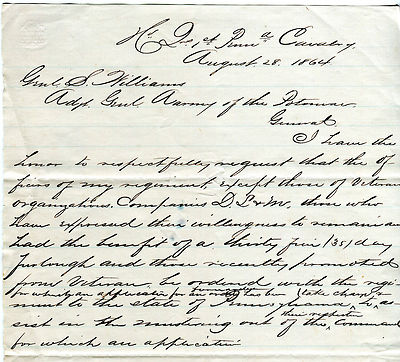 Hd Qrs 1st Penna Cavalry
August 28. 1864
Genl S. Williams
Adjt. Genl Aarmy of the Potomac
General
I have the
honor to respectfully request that the of
ficers of my regiment, except those of Veteran
organizations. Companies D. L & M, those who
have expressed their willingness to remain and
had the benefit of a thirty five (35) day
furlough and those recently promoted
from Veterans, be ordered with the regi-
for whom an application for has been
ment to the state of Pennsylvania to as-
their respective
sist in the mustering out of the command
for which an application